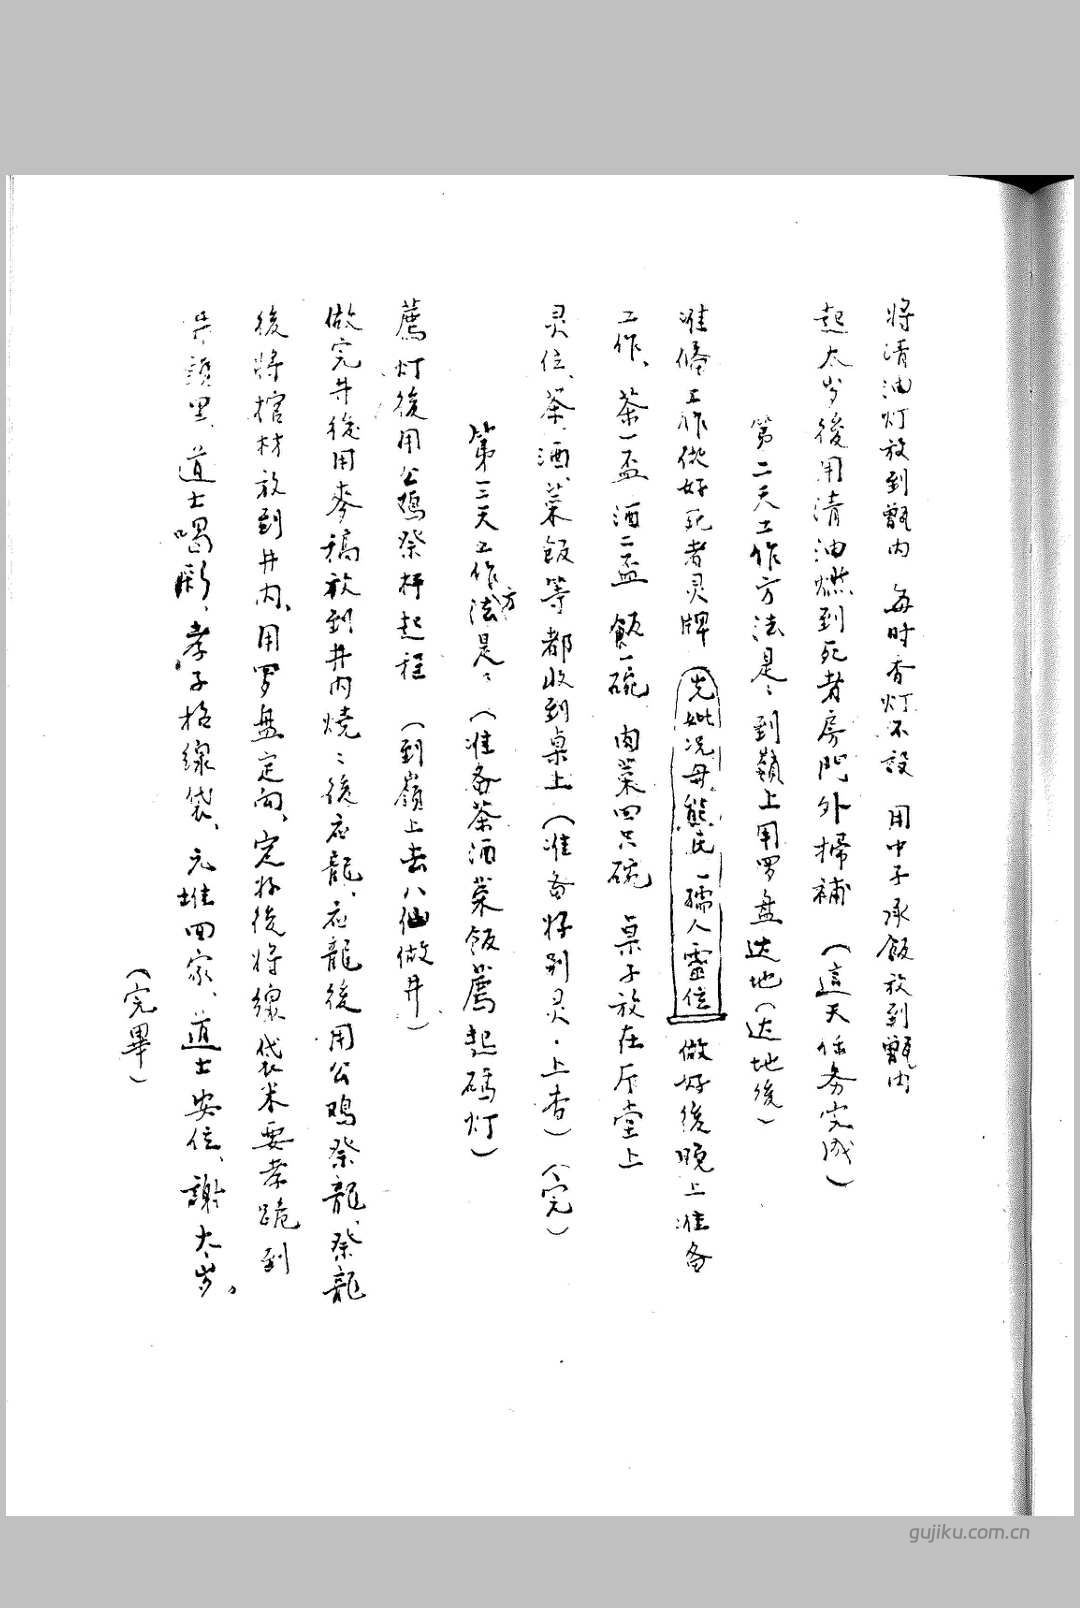 将清油灯放到甑内 每时香灯不設 用中子承飯放到甑内
起太岁後用清油燃到死者房門外掃補 （這天任务完成）
第二天工作方法是：到嶺上用罗盘达地（达地後）
准偹工作做好死者灵牌 先妣况母熊氏一孺人靈位 做好後晚上准备
工作、茶一盃 酒二盃 飯一碗 肉菜四只碗 桌子放在厅堂上
灵位、茶、酒、菜飯等都收到桌上（准备好别灵·上香）（完）
第三天工作方法是：（准备茶酒菜飯薦起碼灯）
薦灯後用公鳮祭杠起程 （到嶺上去八仙做井）
做完井後用麥稿放到井内燒：後启龍、启龍後用公鳮祭龍、祭龍
後將棺材放到井内、用罗盘定向、定好後将線袋米要孝跪到
井頭里、道士喝彩、孝子格線袋、元堆四家、道士安位、謝太岁。
（完畢）
gujiku.com.cn